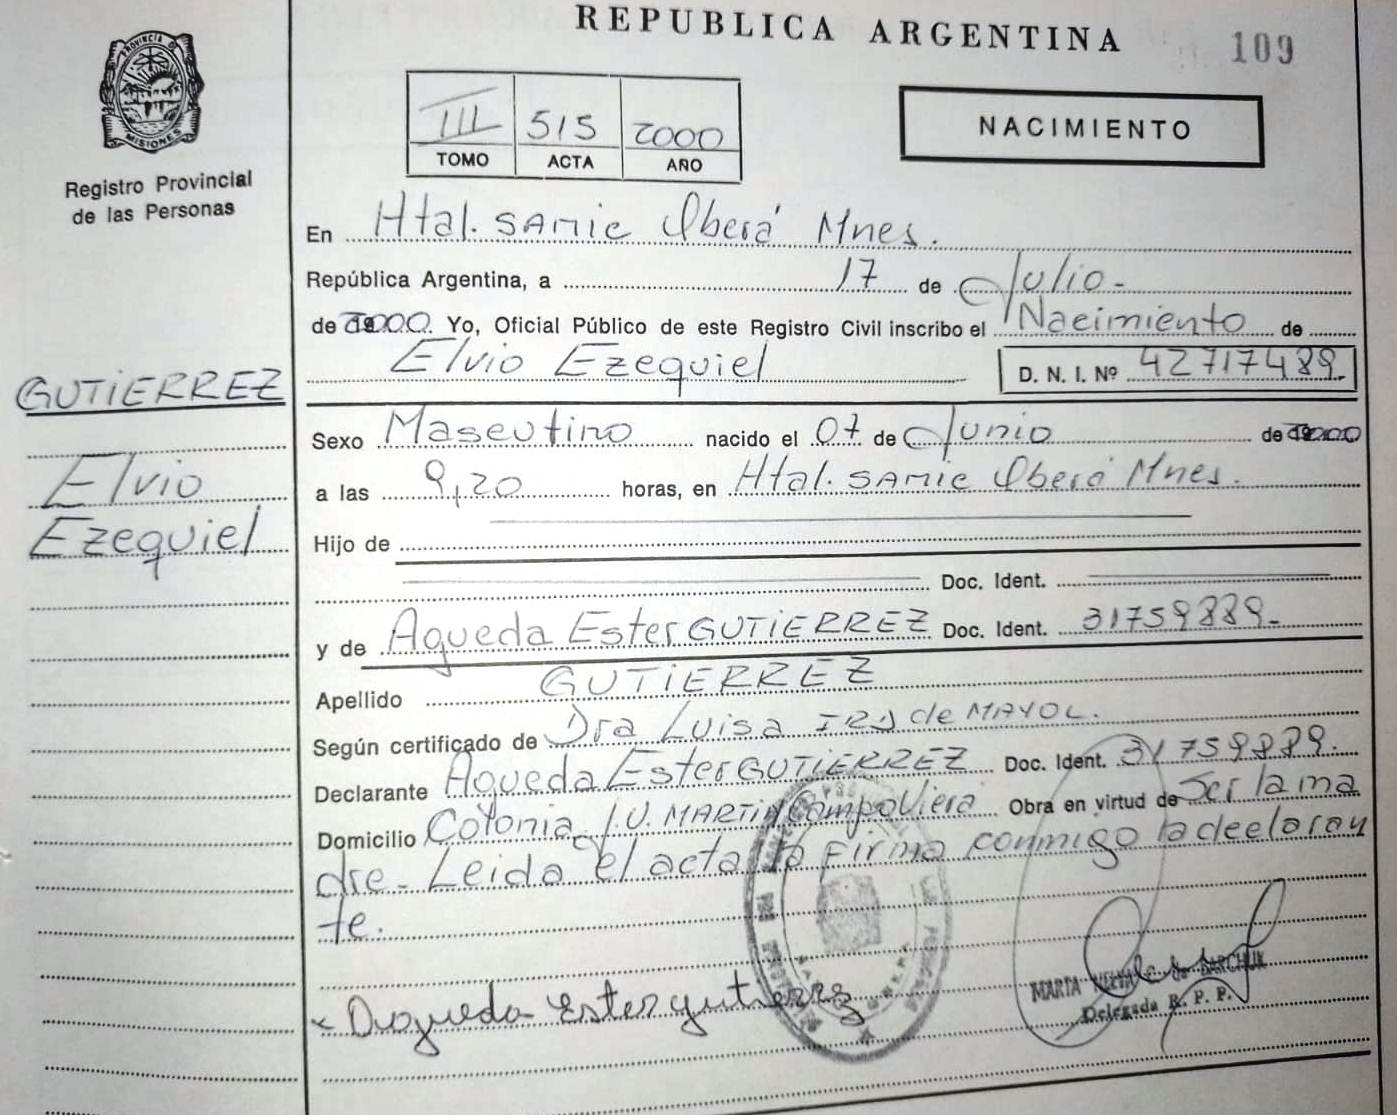 REPUBLICA ARGENTINA
109
PROVINCIA DE
MISIONES
Registro Provincial
de las Personas
III 515 2000
TOMO ACTA AÑO
NACIMIENTO
En Htal. SAMIC Oberá Mnes.
República Argentina, a 17 de Julio-
de 2000. Yo, Oficial Público de este Registro Civil inscribo el Nacimiento de
Elvio Ezequiel D. N. I. Nº 42717489.
GUTIERREZ
Elvio
Ezequiel
Sexo Masculino nacido el 07 de Junio de 2000
a las 9,20 horas, en Htal. SAMIC Oberá Mnes.
Hijo de
Doc. Ident.
y de Agueda Ester GUTIERREZ Doc. Ident. 31759889.-
Apellido GUTIERREZ
Según certificado de Dra Luisa de MAYOL.
Declarante Agueda Ester GUTIERREZ Doc. Ident. 31759889.
Domicilio Colonia J.V. MARTIN Campo Viera Obra en virtud de Ser la ma
dre- Leida el acta la Firma conmigo la declaran
te.
x Agueda Ester gutierrez
MARTA DE BARCHUK
Delegada R. P. P.